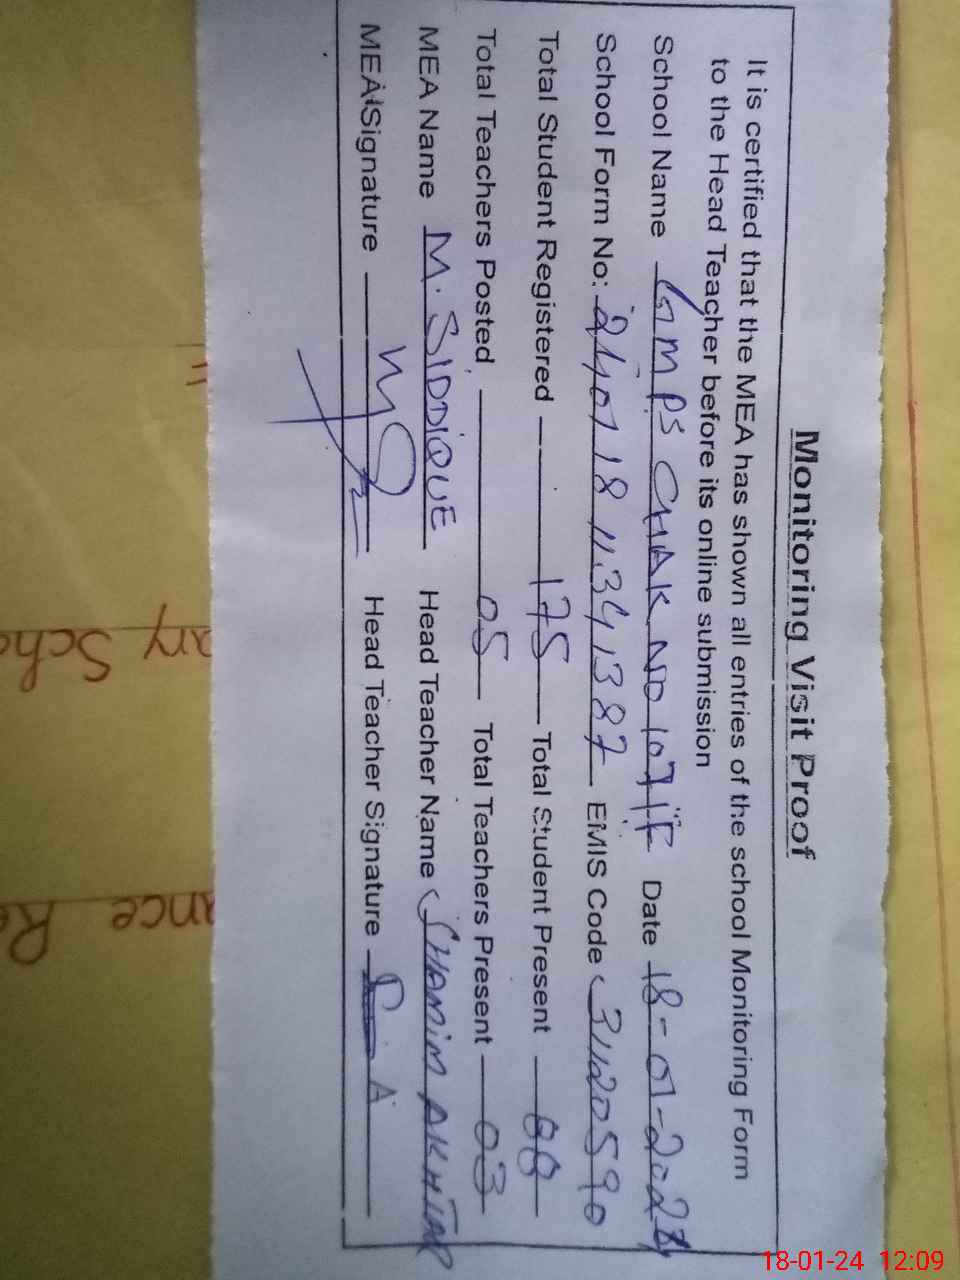 Monitoring Visit Proof
It is certified that the MEA has shown all entries of the school Monitoring Form
to the Head Teacher before its online submission
School Name GMPS CHAK NO 107/F Date 18-01-2024
School Form No: EMIS Code 31120590
Total Student Registered 175 Total Student Present 88
Total Teachers Posted 05 Total Teachers Present 03
MEA Name M. SIDDIQUE Head Teacher Name SHAMIM AKHTAR
MEA Signature Head Teacher Signature S. A
ary Scho
ance Re
18-01-24 12:09